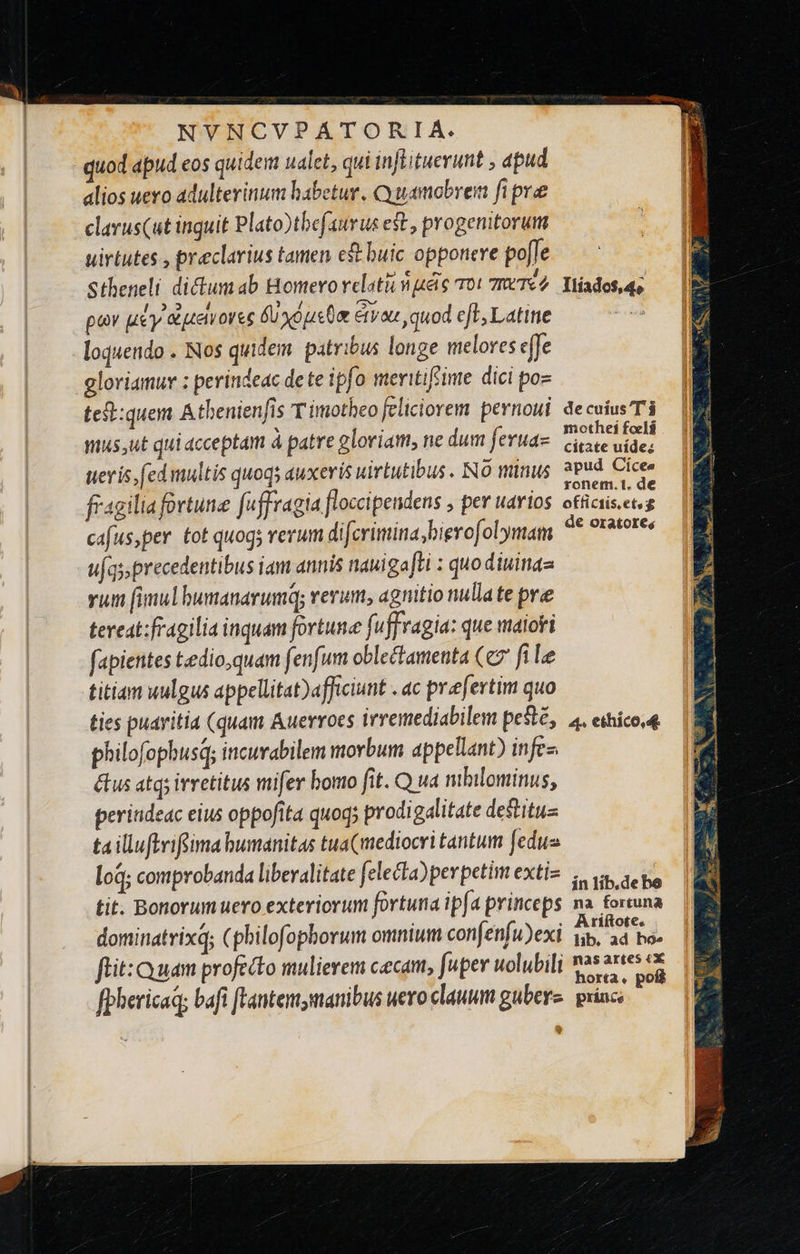 NVNCVPATORIA.
quod apud eos quidem ualet, qui inſtituerunt , apud
alios uero adulterinum habetur. Quamobrem ſi præ
clarus(ut inquit Plato)theſaurus est, progenitorum
uirtutes , præclarius tamen est huic opponere poſſe
Stheneli dictum ab Homero relatū ἡμεῖς τοι πατέ
ρων μέγ᾽ ἀμείνονες ἐυχόμεθα ἐῖναι ,quod eſt, Latine
loquendo . Nos quidem patribus longe melores eſſe
gloriamur : perindeac de te ipſo meritiſſime dici po=
test:quem Athenienſis Timotheo feliciorem pernoui
mus,ut qui acceptam à patre gloriam, ne dum ſerua=
ueris,ſed multis quoq; auxeris uirtutibus. Nō minus
fragilia fortunæ ſuffragia floccipendens , per uarios
caſus,per tot quoq; rerum diſcrimina,hieroſolymam
uſq;,precedentibus iam annis nauigaſti : quo diuina=
rum ſimul humanarumq; rerum, agnitio nulla te præ
tereat:fragilia inquam fortunæ ſuffragia: que maiori
ſapientes tædio,quam ſenſum oblectamenta (& ſi læ
titiam uulgus appellitat)afficiunt . ac præſertim quo
ties puaritia (quam Auerroes irremediabilem pestē,
philoſophusq; incurabilem morbum appellant) infe=
ctus atq; irretitus miſer homo fit. Qua nihilominus,
perindeac eius oppoſita quoq; prodigalitate destitu=
ta illuſtriſſima humanitas tua(mediocri tantum ſedu=
loq; comprobanda liberalitate ſelecta)perpetim exti=
tit. Bonorum uero exteriorum fortuna ipſa princeps
dominatrixq; (philoſophorum omnium conſenſu)exi
ſtit: Quam profecto mulierem cæcam, ſuper uolubili
ſphericaq; baſi ſtantem,manibus uero clauum guber=
Iliados,4.
de cuius Ti
mothei fœli
citate uide;
apud Cice=
ronem.1. de
officiis.et.;
de oratore,
4. ethico,&
in lib.de bo
na fortuna
Ariſtote.
lib. ad bo=
nas artes ex
horta. poſ;
princ.